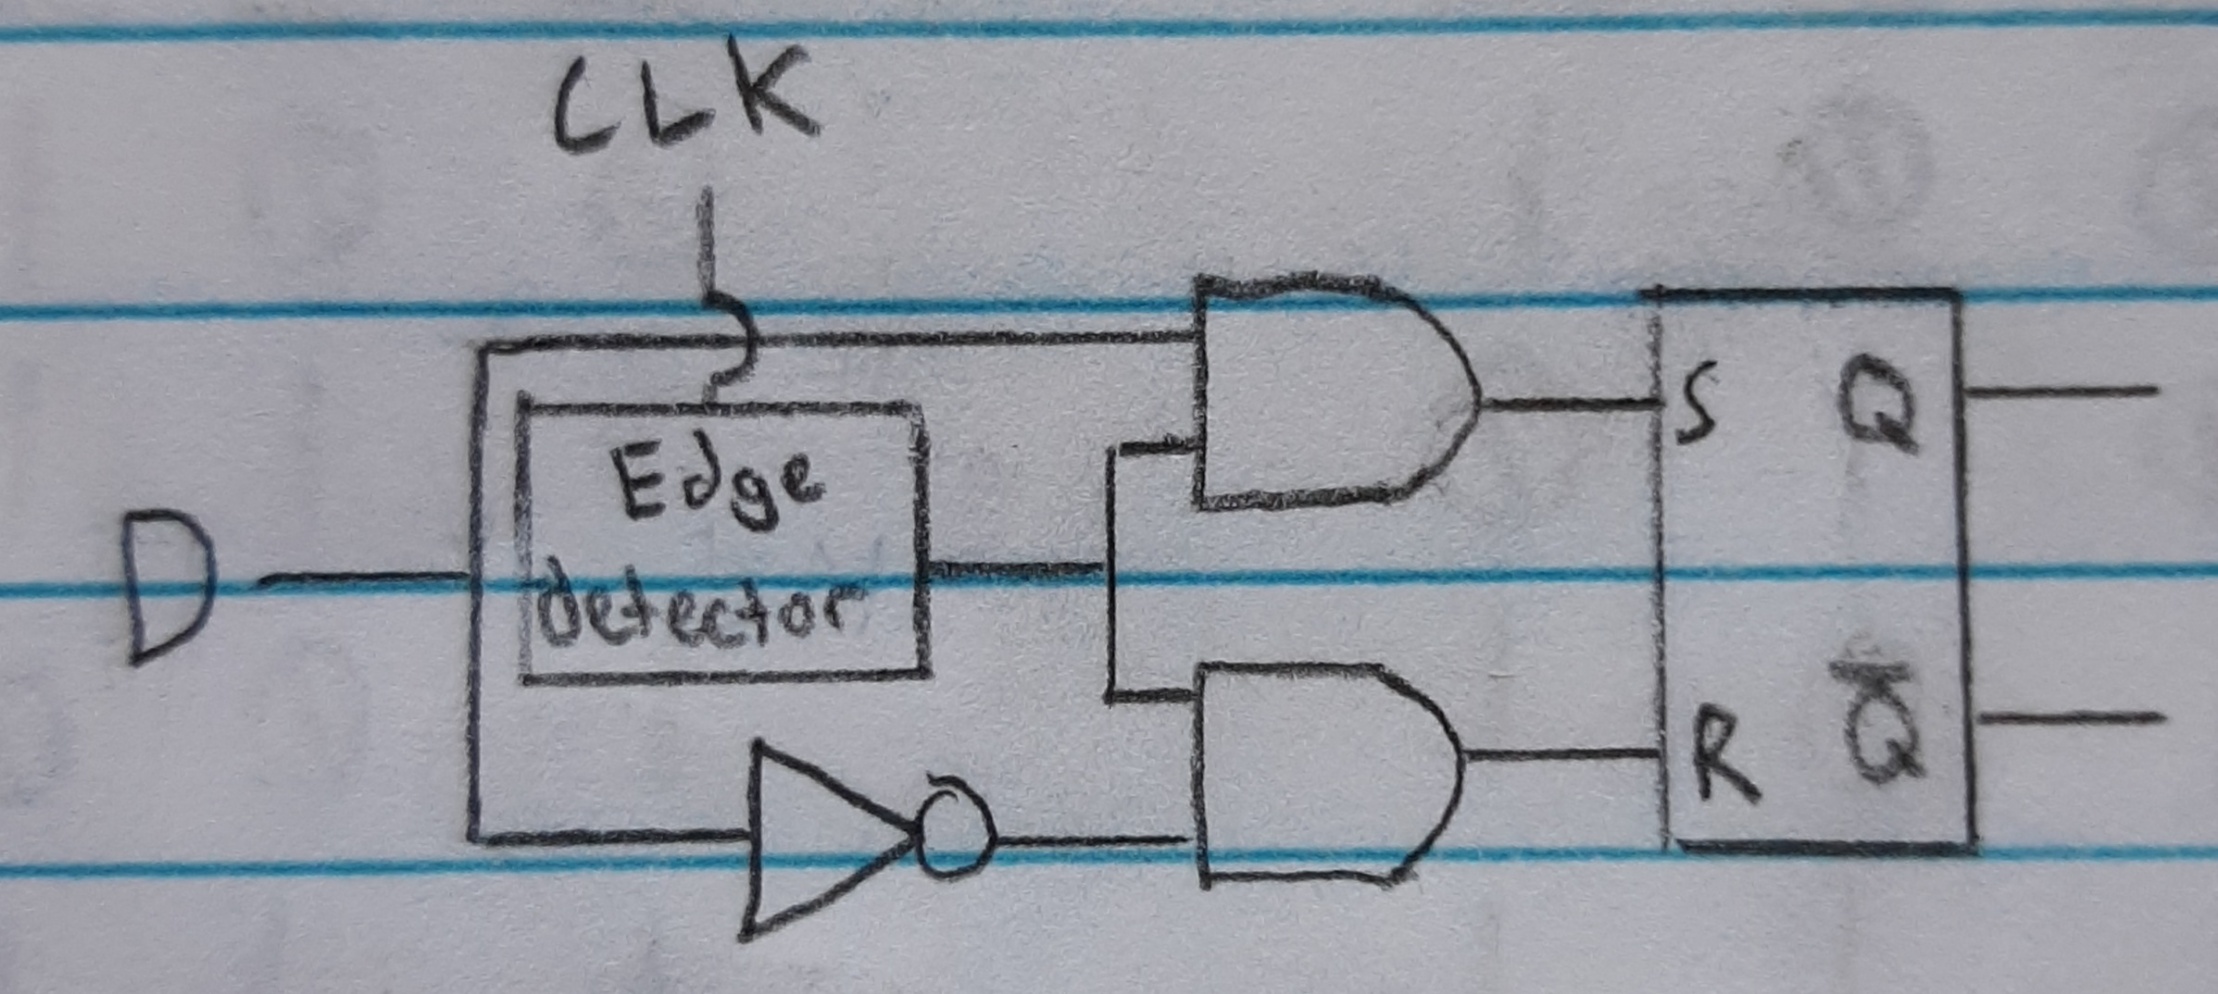 CLK
Edge
detector
D
S Q
R Q̅